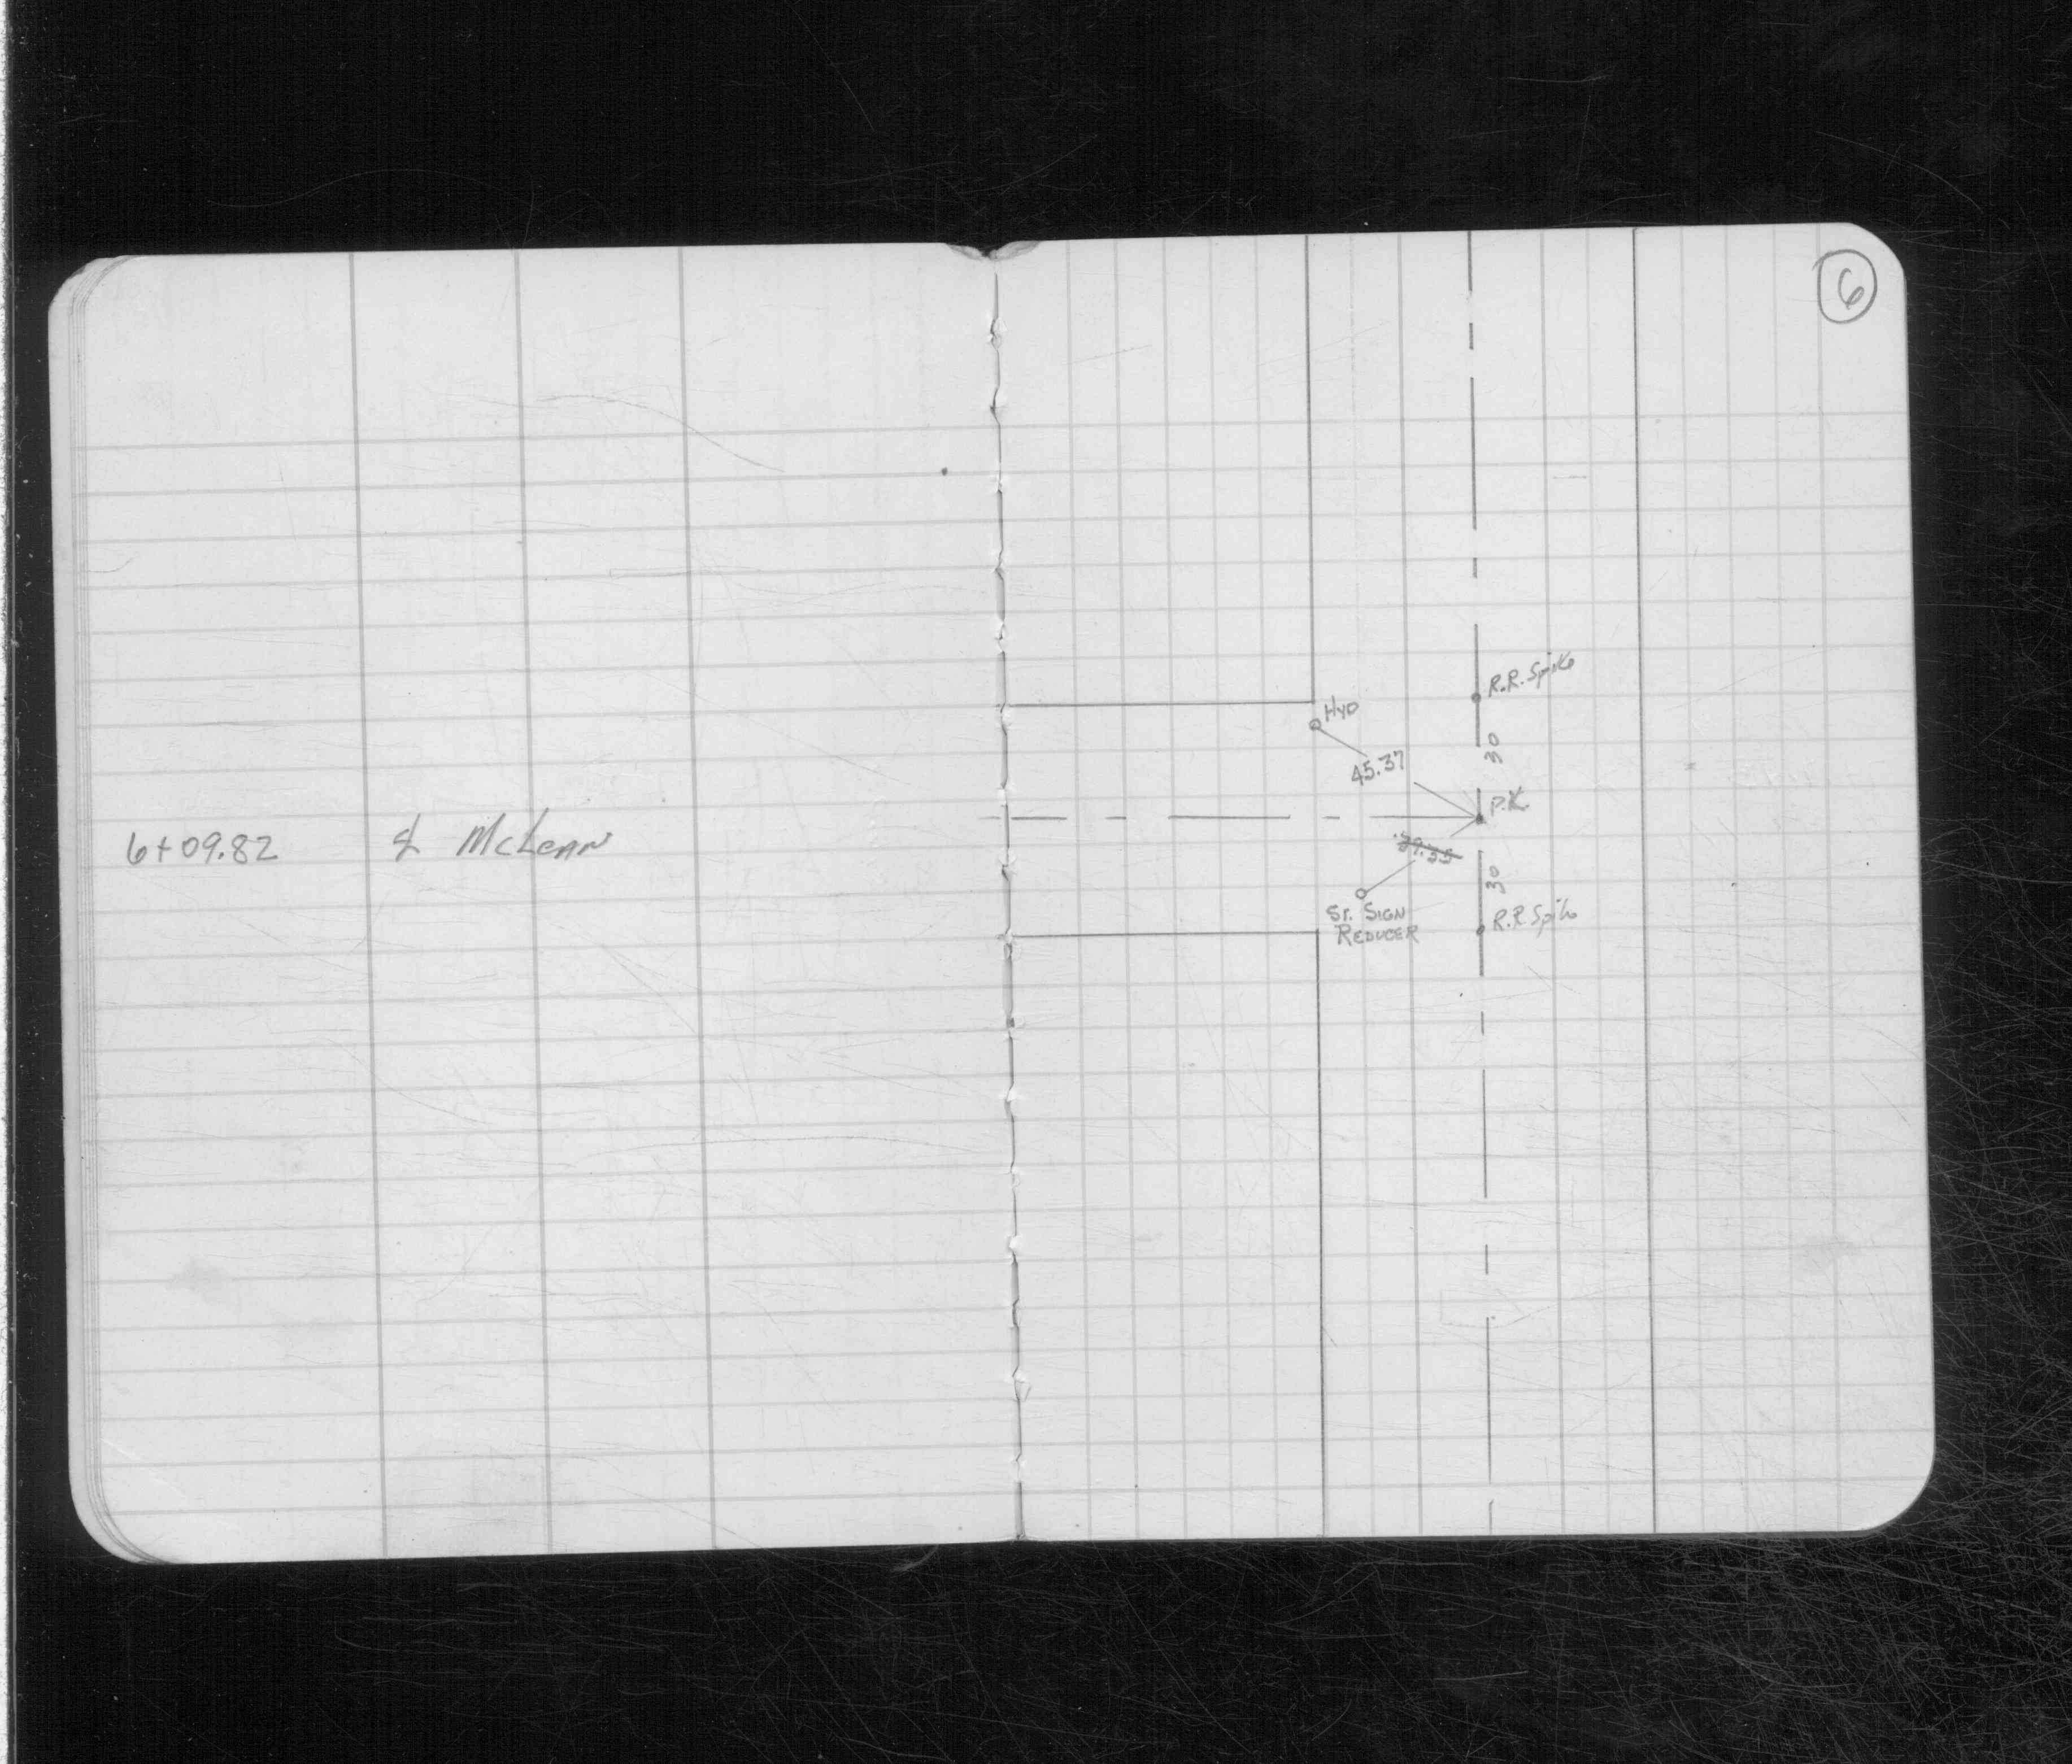 6
R.R. Spike
Hyd
30
45.37
P.K.
6+09.82 ℄ McLean
30
St. Sign
Reducer
R.R. Spike